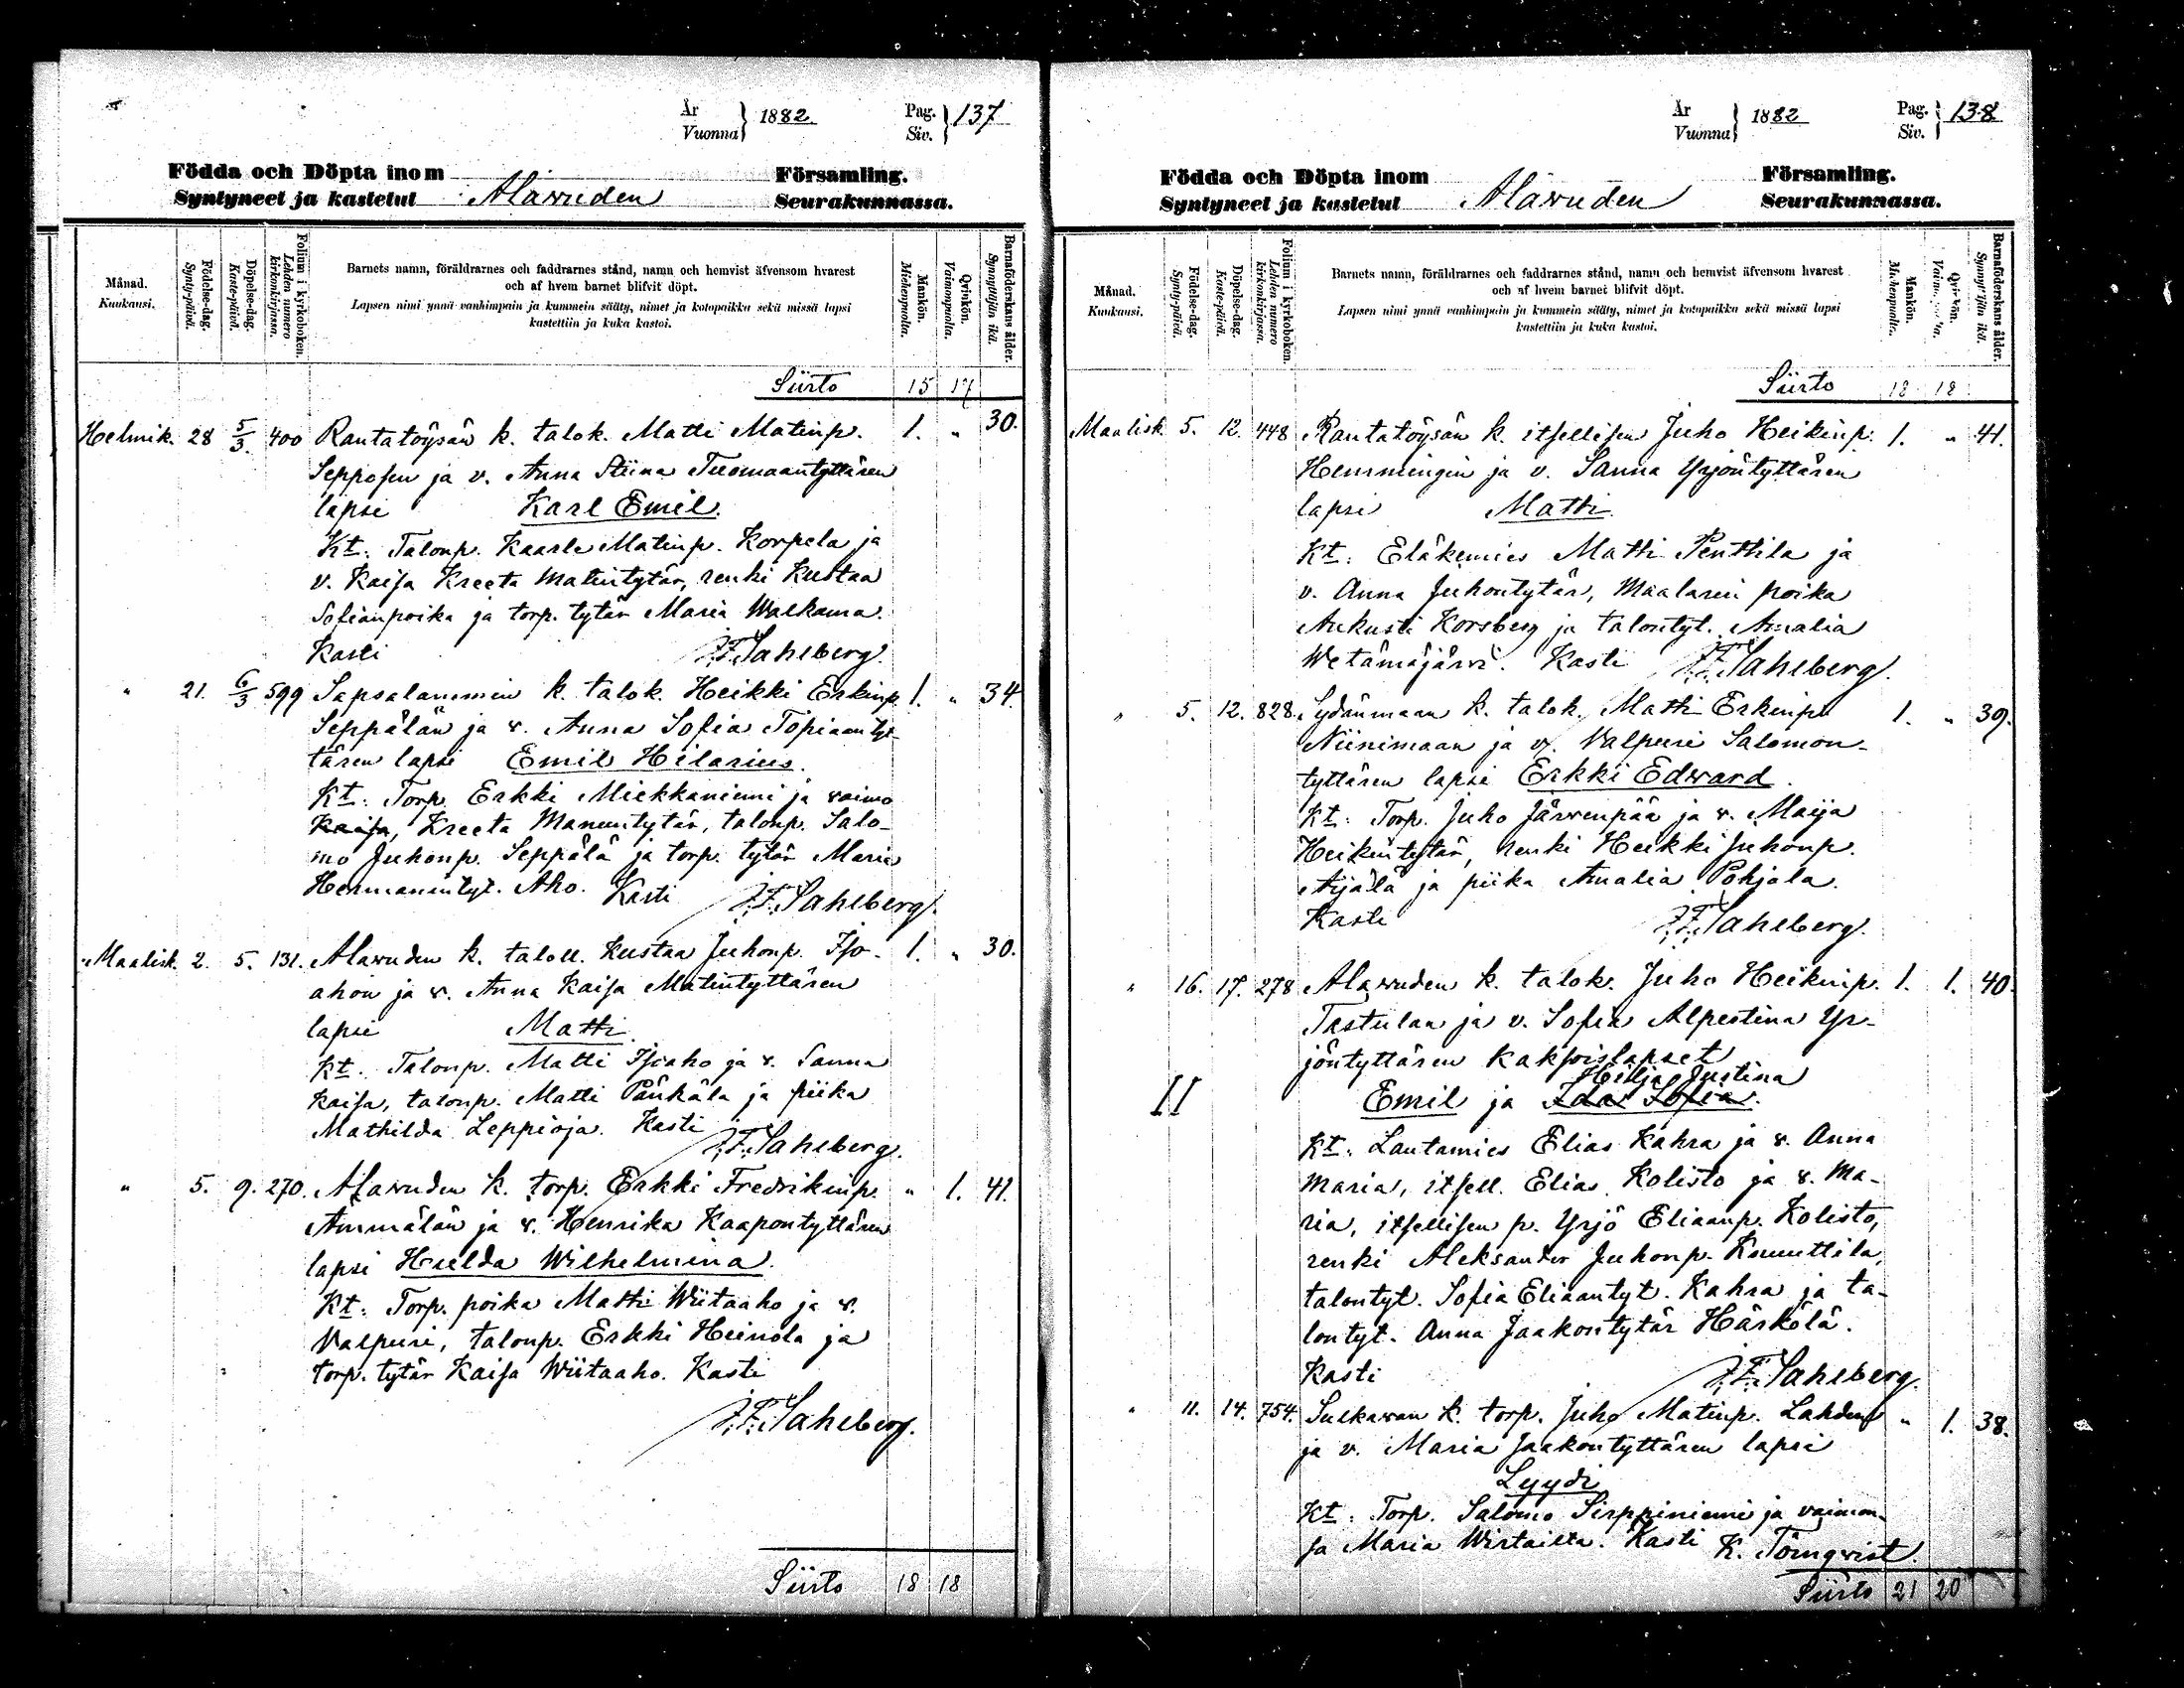 År
Vuonna } 1882
Pag.
Siv. } 137
Födda och Döpta inom Församling.
Syntyneet ja kastetut Alawuden Seurakunnassa.
Månad.
Kuukausi.
Födelse-dag.
Synty-päivä.
Döpelse-dag.
Kaste-päivä.
Folium i kyrkoboken.
Lehden numero
kirkonkirjassa.
Barnets namn, föräldrarnes och faddrarnes stånd, namn och hemvist äfvensom hvarest
och af hvem barnet blifvit döpt.
Lapsen nimi ynnä vanhimpain ja kummein sääty, nimet ja kotopaikka sekä missä lapsi
kastettiin ja kuka kastoi.
Mankön.
Miehenpuolta.
Qvinkön.
Vaimonpuolta.
Barnaföderskans ålder.
Synnyttäjän ikä.
Siirto 15 17
Helmik. 28 5/3. 400 Rantatöysän k. talok. Matti Matinp. 1. " 30.
Sepposen ja v. Anna Stiina Tuomaantyttären
lapsi Karl Emil.
Kt: Talonp. Kaarle Matinp. Korpela ja
v. Kaisa Kreeta Matintytär, renki Kustaa
Sofianpoika ja torp. tytär Maria Walkama.
Kasti J.F. Sahlberg.
" 21. 6/3 599 Sapsalammin k. talok. Heikki Erkinp. 1. " 34.
Seppälän ja v. Anna Sofia Topiaantyt-
tären lapsi Emil Hilarius.
Kt: Torp. Erkki Miekkaniemi ja vaimo
Kaisa, Kreeta Manuntytär, talonp. Salo-
mo Juhonp. Seppälä ja torp. tytär Maria
Hermanintyt. Aho. Kasti J.F. Sahlberg.
" Maalisk. 2. 5. 131. Alawuden k. taloll. Kustaa Juhonp. Iso- 1. " 30.
ahon ja v. Anna Kaisa Matintyttären
lapsi Matti.
Kt. Talonp. Matti Isoaho ja v. Sanna
Kaisa, talonp. Matti Pänkälä ja piika
Mathilda Leppioja. Kasti
J.F. Sahlberg.
" 5. 9. 270. Alawuden k. torp. Erkki Fredrikinp. " 1. 41.
Ämmälän ja v. Henrika Kaapontyttären
lapsi Huelda Wilhelmina.
Kt: Torp. poika Matti Wiitaaho ja v.
Valpuri, talonp. Erkki Heinola ja
torp. tytär Kaisa Wiitaaho. Kasti
J.F. Sahlberg.
Siirto 18 18
År
Vuonna } 1882
Pag.
Siv. } 138
Födda och Döpta inom Församling.
Syntyneet ja kastetut Alawuden Seurakunnassa.
Månad.
Kuukausi.
Födelse-dag.
Synty-päivä.
Döpelse-dag.
Kaste-päivä.
Folium i kyrkoboken.
Lehden numero
kirkonkirjassa.
Barnets namn, föräldrarnes och faddrarnes stånd, namn och hemvist äfvensom hvarest
och af hvem barnet blifvit döpt.
Lapsen nimi ynnä vanhimpain ja kummein sääty, nimet ja kotopaikka sekä missä lapsi
kastettiin ja kuka kastoi.
Mankön.
Miehenpuolta.
Barnaföderskans ålder.
Synnyttäjän ikä.
Siirto 18 18
Maalisk. 5. 12. 448 Rantatöysän k. itsellisen Juho Heikinp. 1. " 41.
Hemmingin ja v. Sanna Yrjöntyttären
lapsi Matti.
Kt: Eläkemies Matti Penttila ja
v. Anna Juhontytär, Maalarin poika
Aukusti Korsberg ja talontyt. Amalia
Wetämäjärvi. Kasti J.F. Sahlberg.
" 5. 12. 828. Sydänmaan k. talok. Matti Erkinp. 1. " 39.
Niinimaan ja v. Valpuri Salomon-
tyttären lapsi Erkki Edward.
Kt: Torp. Juho Järvenpää ja v. Maija
Heikintytär, renki Heikki Juhonp.
Äijälä ja piika Amalia Pohjala.
Kasti J.F. Sahlberg.
" 16. 17. 278 Alawuden k. talok. Juho Heikinp. 1. 1. 40.
Tastulan ja v. Sofia Alpestina Yr-
jöntyttären kaksoislapset
Hilja Justina
II Emil ja Ida Sofia.
Kt: Lautamies Elias Kahra ja v. Anna
Maria, itsell. Elias Kolisto ja v. Ma-
ria, itsellisen p. Yrjö Eliaanp. Kolisto,
renki Aleksander Juhonp. Knuuttila,
talontyt. Sofia Eliaantyt. Kahra ja ta-
lontyt. Anna Jaakontytär Härkölä.
Kasti J.F. Sahlberg.
" 11. 14. 754. Sulkavan k. torp. Juho Matinp. Lahden " 1. 38.
ja v. Maria Jaakontyttären lapsi
Lyydi
Kt: Torp. Salomo Sirppiniemi ja vaimon-
sa Maria Wirtailta. Kasti K. Törnqvist.
Siirto 21 20